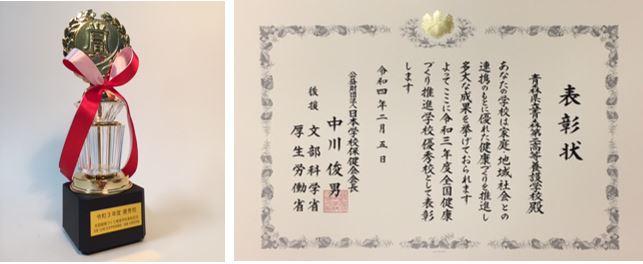 賞
令和3年度 優秀校
表彰状
青森県立青森第二高等養護学校殿
あなたの学校は家庭・地域社会との
連携のもとに優れた健康づくりを推進し
多大な成果を挙げておられます
よってここに令和三年度全国健康
づくり推進学校優秀校として表彰
します
令和四年二月五日
公益財団法人日本学校保健会会長
中川俊男
後援 文部科学省
厚生労働省